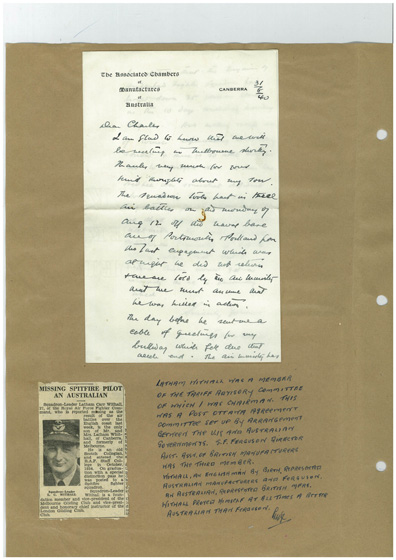 The Associated Chambers
of
Manufactures
of
Australia
CANBERRA 31/8/40
Dear Charles
I am glad to know that we will
be meeting in Melbourne shortly.
Thanks very much for your
kind thoughts about my son.
The squadron took part in three
air battles on Monday
Aug 12.
area of Portsmouth Portland from
the last engagement which was
at night he did not return
we are told by the Air Ministry
that we must assume that
he was killed in action.
The day before he sent me a
cable of greetings for my
birthday which fell due that
week end. The Air Ministry has
MISSING SPITFIRE PILOT
AN AUSTRALIAN
Squadron-Leader Latham Carr Withall,
of the Royal Air Force Fighter
Command, who is reported missing as the
result of the air
battles over the
English coast last
week, is the son
of Mr. and
Mrs. Latham Withall,
of Canberra,
and formerly of
Melbourne.
He is an old
Scotch Collegian,
and entered the
R.A.A.F. Staff
College in
On graduation
with a special
distinction pass he
was posted to a
squadron.
Squadron-Leader
L. C. WITHALL
Squadron-Leader
Withall is a
member and vice-president of the
Melbourne Gliding Club and vice-president
and honorary chief instructor of the
London Gliding Club.
LATHAM WITHALL WAS A MEMBER
OF THE TARIFF ADVISORY COMMITTEE
OF WHICH I WAS CHAIRMAN. THIS
WAS A POST OTTAWA AGREEMENT
COMMITTEE SET UP BY ARRANGEMENT
BETWEEN THE U.K. AND AUSTRALIAN
GOVERNMENTS. S.F. FERGUSON DIRECTOR
AUST. OF BRITISH MANUFACTURERS
WAS THE THIRD MEMBER.
WITHALL, AN ENGLISHMAN BY BIRTH, REPRESENTED
AUSTRALIAN MANUFACTURERS AND FERGUSON,
AN AUSTRALIAN, REPRESENTED BRITISH MFRS.
WITHALL PROVED HIMSELF AT ALL TIMES A BETTER
AUSTRALIAN THAN FERGUSON.